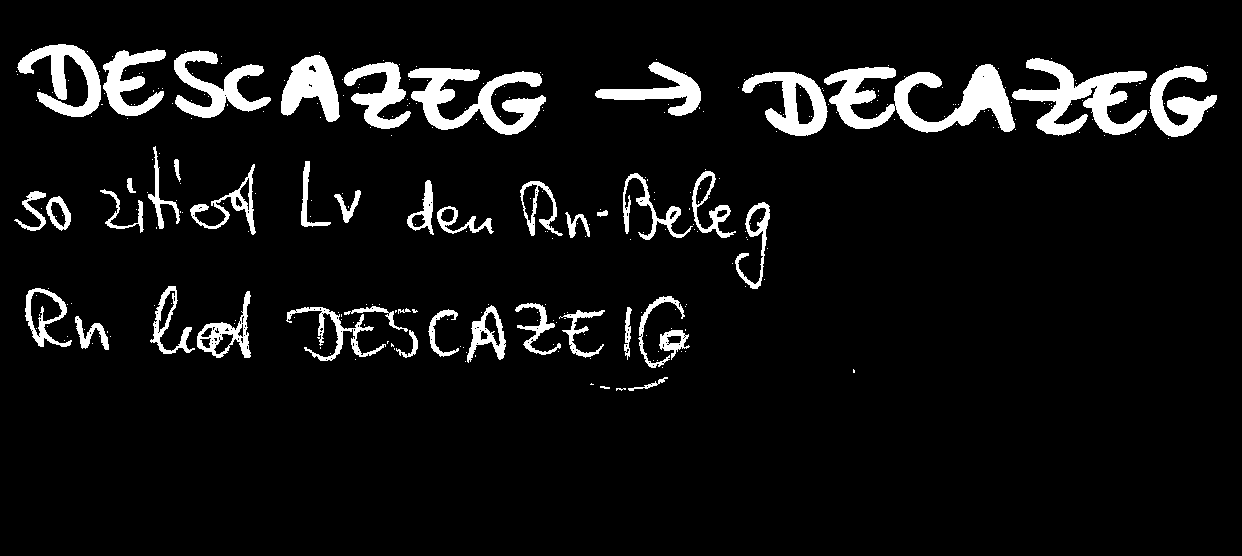 DESCAZEG → DECAZEG
so zitiert Lv den Rn-Beleg
Rn hat DESCAZEIG